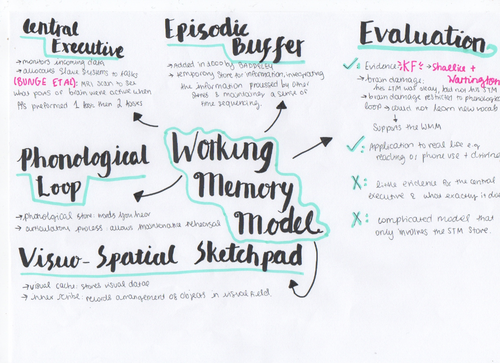 Central
Executive
→ monitors incoming data
→ allocates slave systems to tasks
(BUNGE ET AL): MRI Scan to see
what parts of brain were active when
PPs preformed 1 task then 2 tasks
Episodic
Buffer
→ added in 2000 by BADDELEY
→ temporary store for information, integrating
the information processed by other
stores & maintaining a sense of
time sequencing.
Phonological
Loop
→ phonological store: words you hear
→ articulatory process: allows maintenance rehearsal
Working
Memory
Model
Visuo-Spatial Sketchpad
→ visual cache: stores visual data
→ inner scribe: records arrangement of objects in visual field
Evaluation
✓: Evidence: KF: → Shallice +
Warrington
→ brain damage:
the STM was but not the
→ brain damage restricted to phonological
loop → could not learn new
Supports the WMM
✓: Application to real life e.g
reading or phone use +
X: little evidence for the central
executive & what exactly it does
X: complicated model that
only involves the STM store.